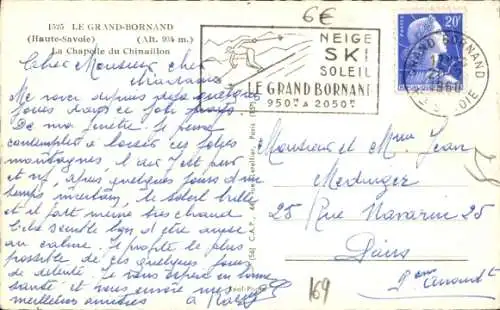 6€
1525 LE GRAND-BORNAND
(Haute-Savoie) (Alt. 934 m.)
La Chapelle du Chinaillon
NEIGE
SKI
SOLEIL
LE GRAND BORNAND
950M A 2050M
POSTES
20F
GRAND BORNAND
1960
Cher Monsieur cher
Me voici depuis quelques
jours dans ce joli pays
De ma fenêtre je peux
contempler à loisir ces belles
montagnes, il
et après quelques jours d'un
temps incertain, le soleil brille
et il fait même très chaud
Cela semble bon d'être aussi
au calme. Je profite le plus
possible de ces quelques jours
de détente. Je vous espère en bonne
santé et vous envoie mes
meilleures amitiés
Monsieur et Mme Jean
Medinger
25 Rue Navarin 25
Paris
169